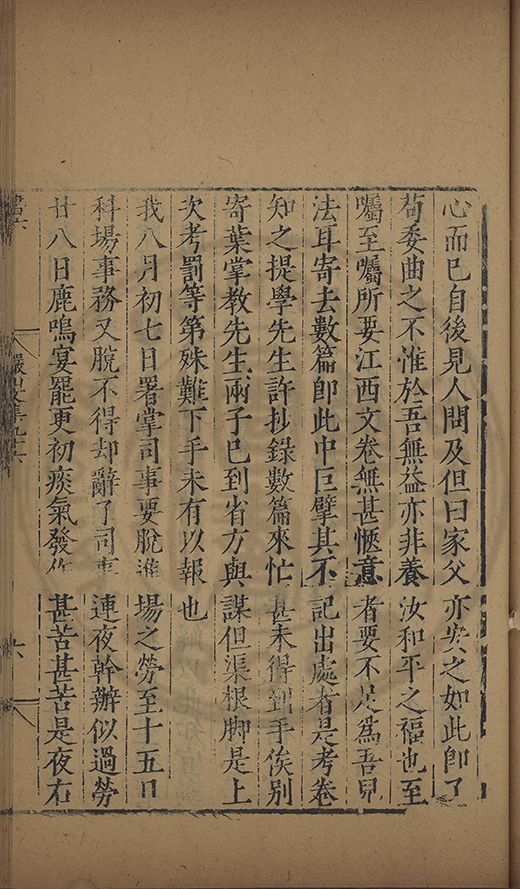 心而已自後見人問及但曰家父亦安之如此卽了
苟委曲之不惟於吾無益亦非養汝和平之福也至
囑至囑所要江西文卷無甚愜意者要不足爲吾兒
法耳寄去數篇卽此中巨擘其不記出處者是考卷
知之提學先生許抄錄數篇來忙甚未得到手俟別
寄葉掌教先生兩子已到省方與謀但渠根脚是上
次考罰等第殊難下手未有以報也
我八月初七日署掌司事要脫進場之勞至十五日
科塲事務又脫不得却辭了司事連夜幹辦似過勞
廿八日鹿鳴宴罷更初痰氣發作甚苦甚苦是夜右
六